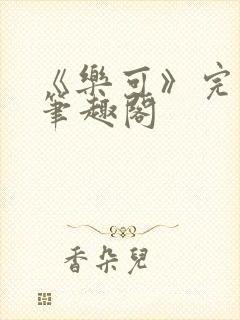 《樂可》完
筆趣閣
香朵兒